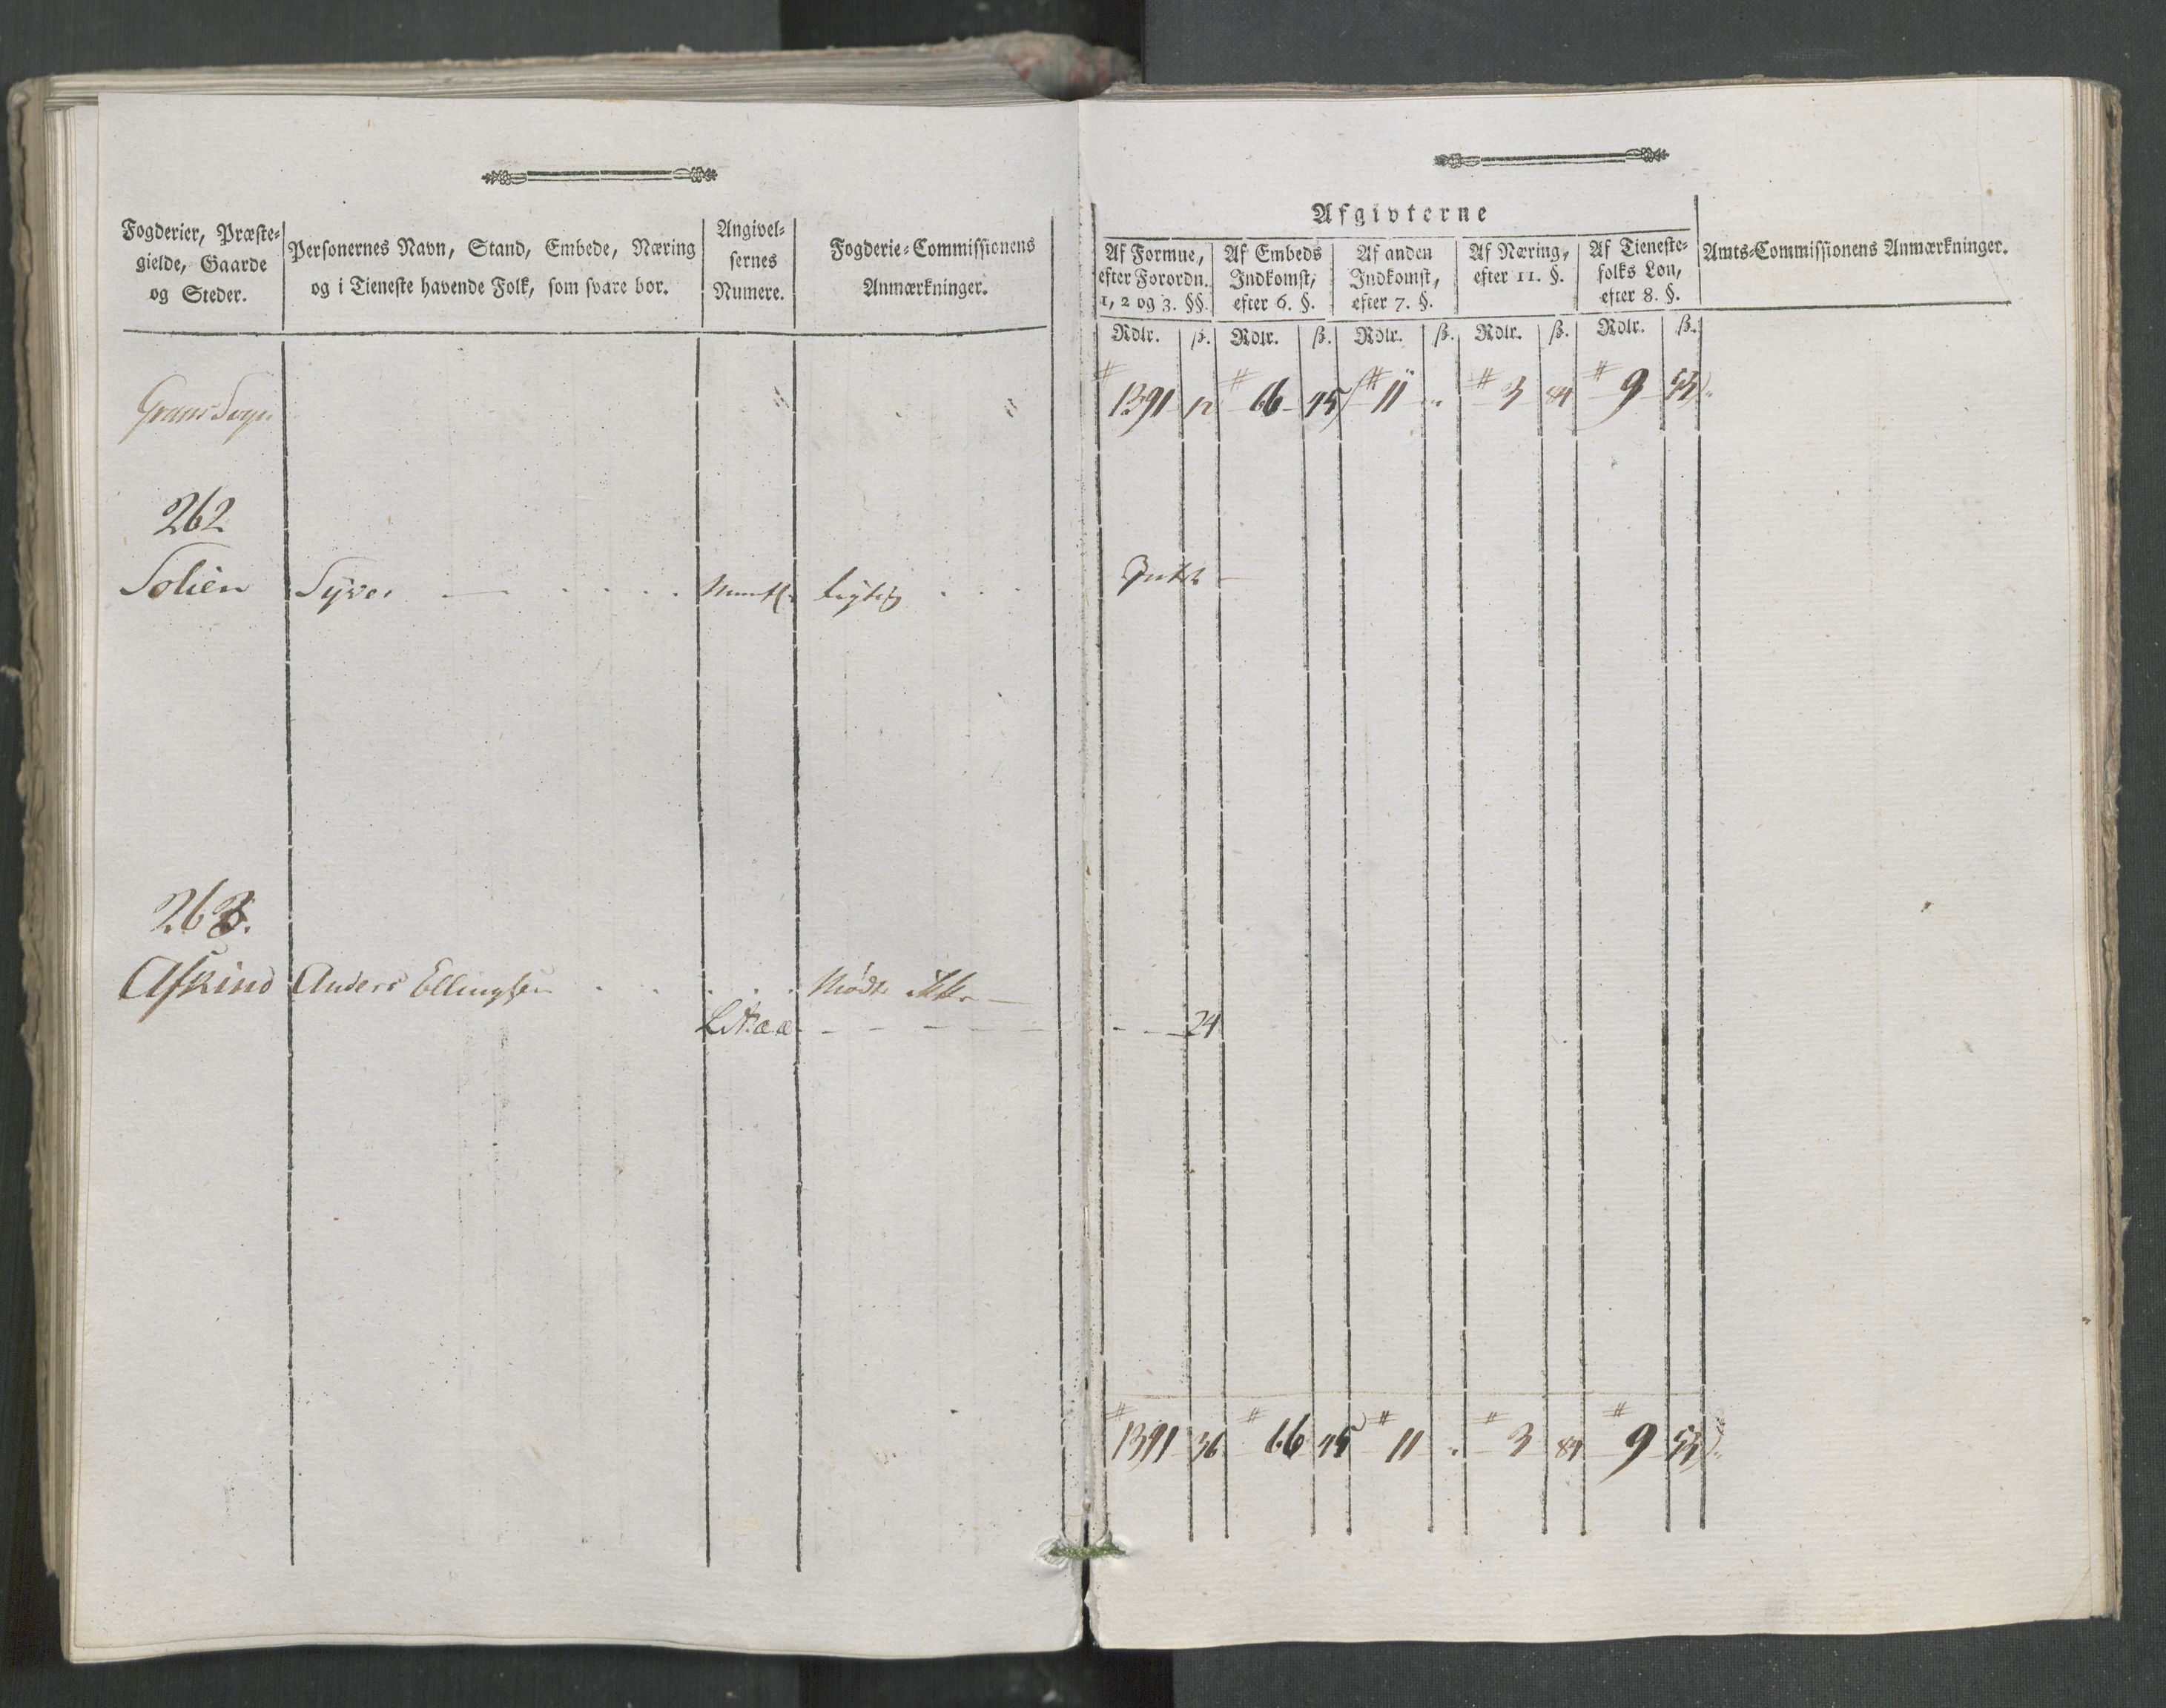 Fogderier, Præste-
gielde, Gaarde
og Steder.
Personernes Navn, Stand, Embede, Næring
og i Tieneste havende Folk, som svare bør.
Angivel-
sernes
Numere.
Fogderie-Commissionens
Anmærkninger.
Grans Sogn
262
Solien Syver Mundtl. fugtig
263.
Askind Anders Ellingsen Mødte ikke
Litr. a a
Afgivterne
Af Formue,
efter Forordn.
1, 2 og 3. §§.
Af Embeds
Indkomst,
efter 6. §.
Af anden
Indkomst,
efter 7. §.
Af Næring,
efter 11. §.
Af Tieneste-
folks Løn,
efter 8. §.
Amts-Commissionens Anmærkninger.
Rdlr. ß. Rdlr. ß. Rdlr. ß. Rdlr. ß. Rdlr. ß.
1391 12 66 45 11 " 3 84 9 53
Intet
24
1391 36 66 45 11 " 3 84 9 53